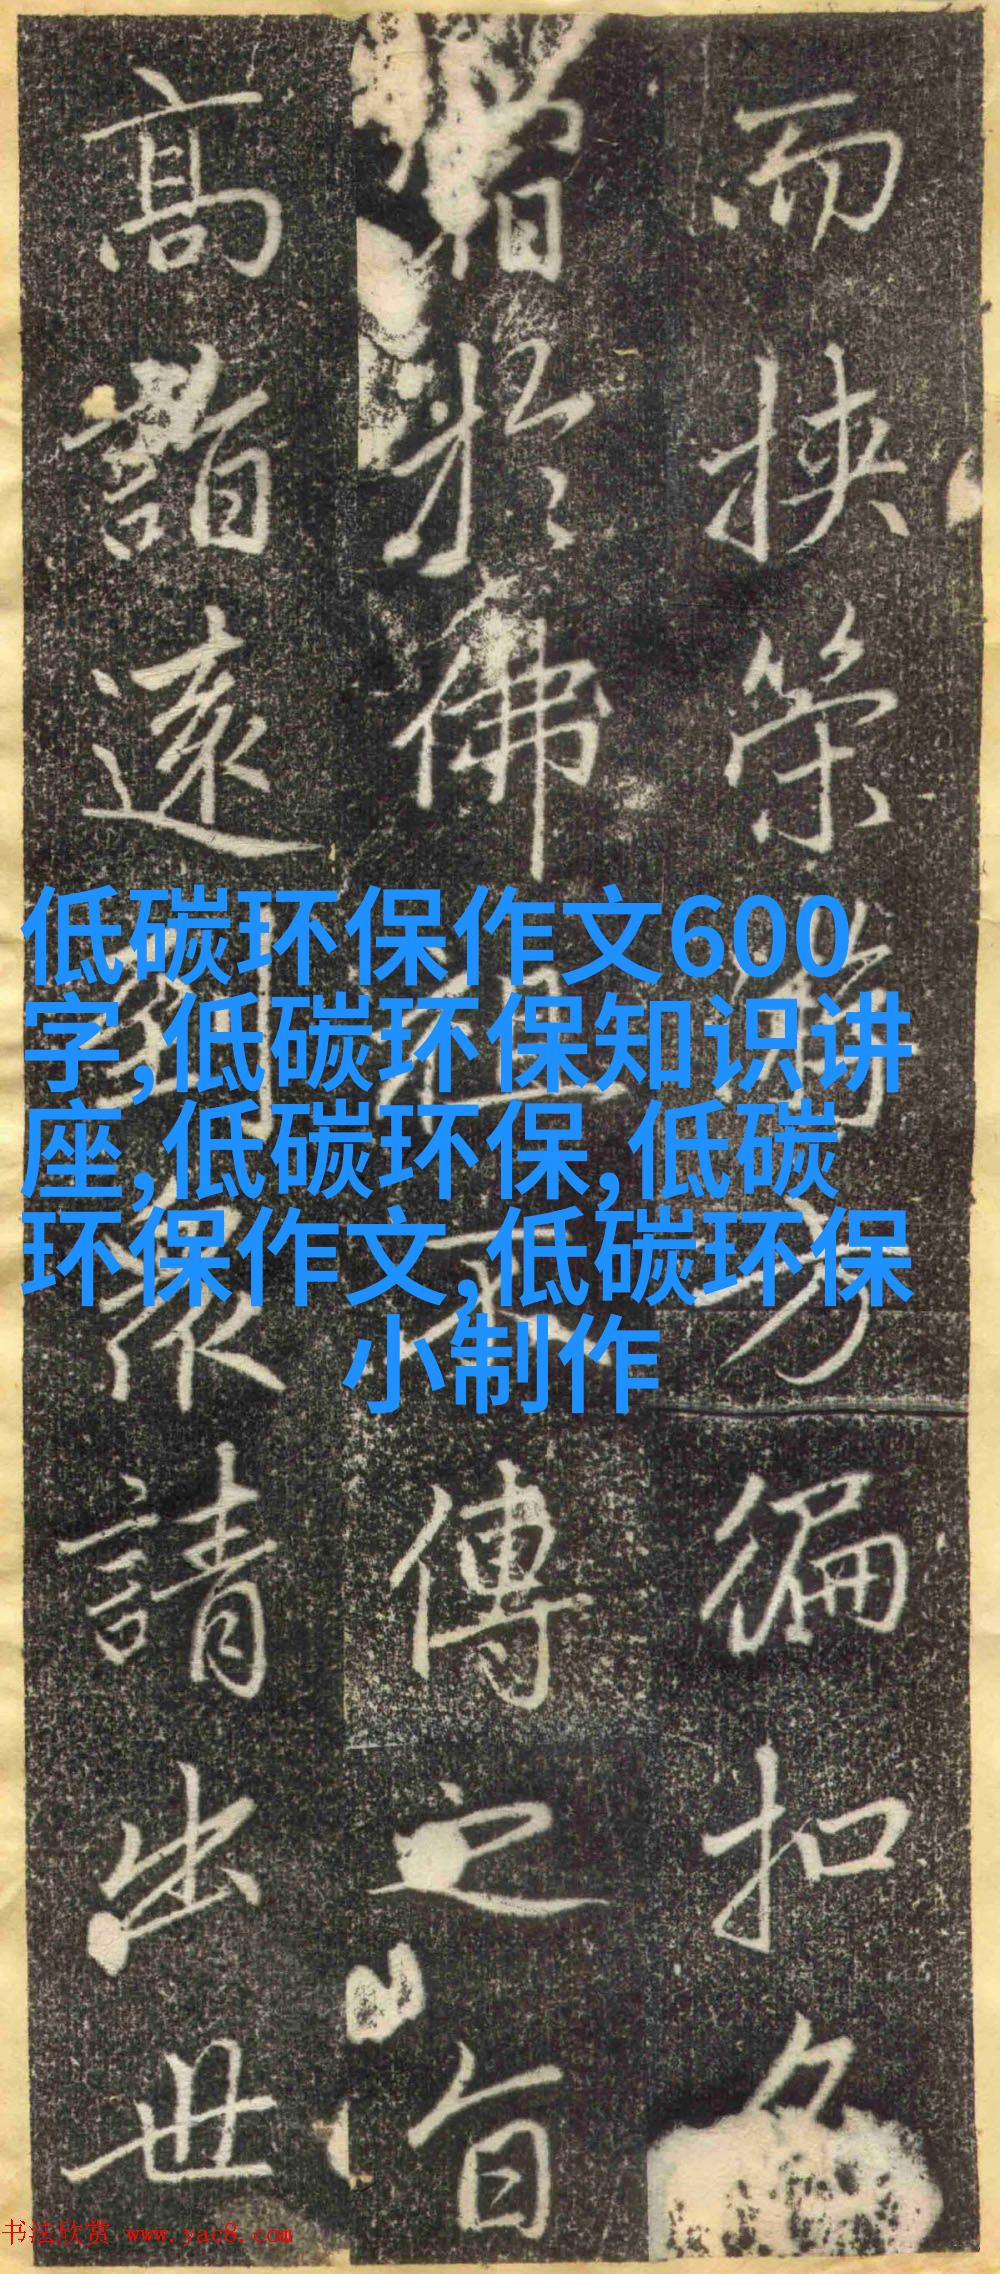 而挾策游方徧扣名
於佛祖不傳之旨
高詣遠衆請出世
低碳环保作文600
字,低碳环保知识讲
座,低碳环保,低碳
环保作文,低碳环保
小制作
书法欣赏 www.yac8.com